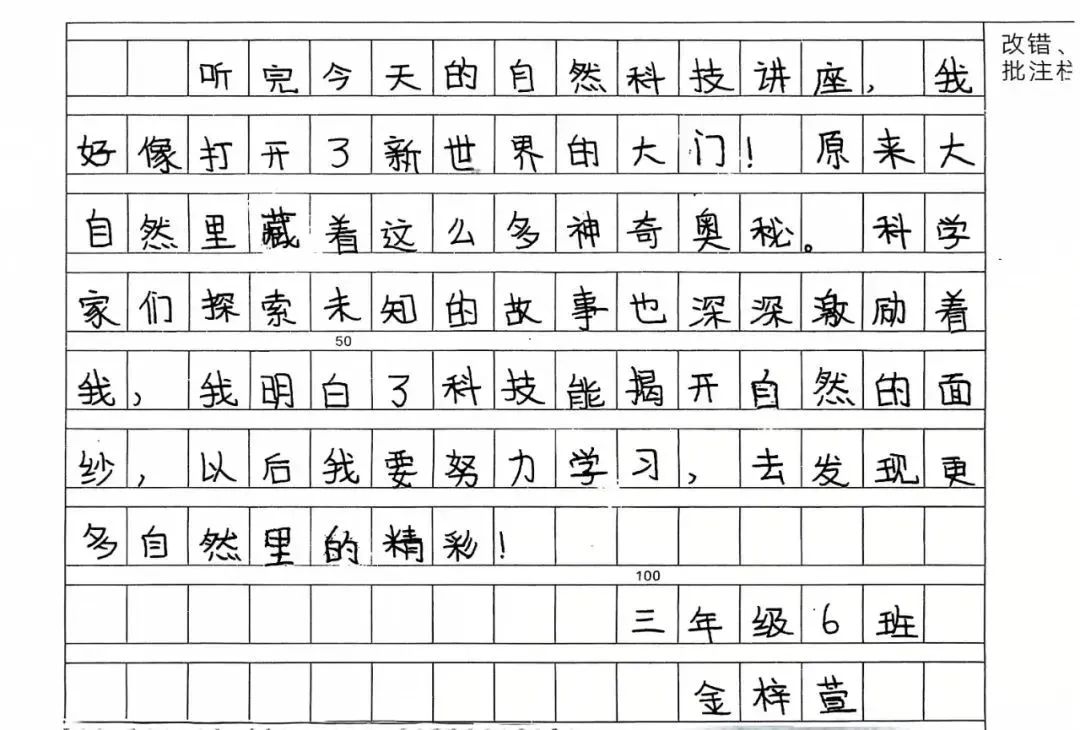 改错、
批注栏
听完今天的自然科技讲座，我
好像打开了新世界的大门！原来大
自然里藏着这么多神奇奥秘。科学
家们探索未知的故事也深深激励着
50
我，我明白了科技能揭开自然的面
纱，以后我要努力学习，去发现更
多自然里的精彩！
100
三年级6班
金梓萱